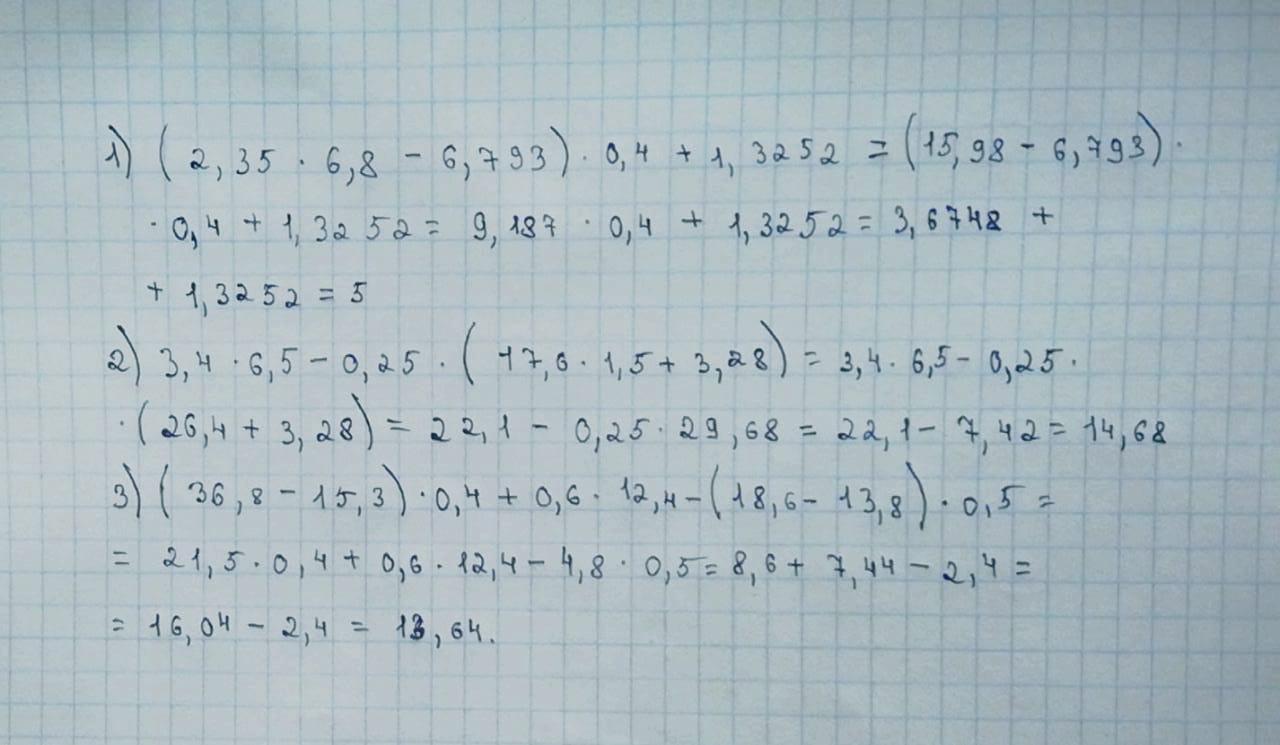 1) (2,35 · 6,8 - 6,793) · 0,4 + 1,3252 = (15,98 - 6,793) ·
· 0,4 + 1,3252 = 9,187 · 0,4 + 1,3252 = 3,6748 +
+ 1,3252 = 5
2) 3,4 · 6,5 - 0,25 · (17,6 · 1,5 + 3,28) = 3,4 · 6,5 - 0,25 ·
· (26,4 + 3,28) = 22,1 - 0,25 · 29,68 = 22,1 - 7,42 = 14,68
3) (36,8 - 15,3) · 0,4 + 0,6 · 12,4 - (18,6 - 13,8) · 0,5 =
= 21,5 · 0,4 + 0,6 · 12,4 - 4,8 · 0,5 = 8,6 + 7,44 - 2,4 =
= 16,04 - 2,4 = 13,64.